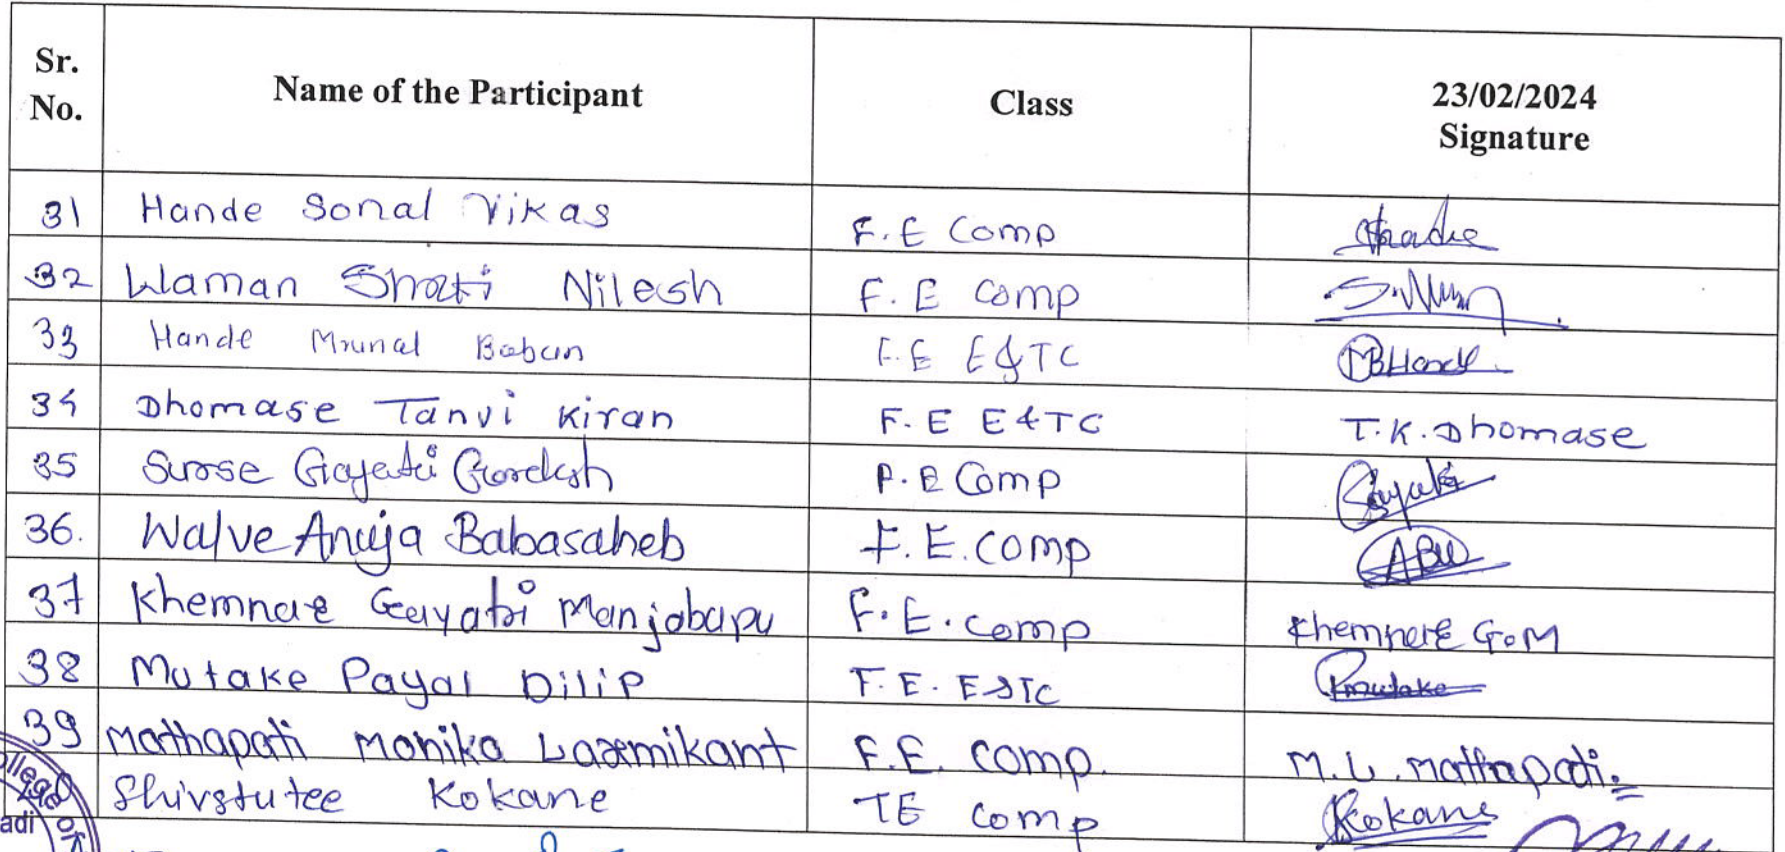 Sr. No. Name of the Participant Class 23/02/2024 Signature
31 Hande Sonal Vikas F.E Comp Hande
32 Waman Nilesh F.E comp
33 Hande Mrunal Baban F.E E&TC MBHande
34 Dhomase Tanvi Kiran F.E E&TC T.K.Dhomase
35 Gayatri F.E Comp Gayatri
36. Walve Anuja Babasaheb F.E.comp ABW
37 Khemnar Gayatri Manjabapu F.E.comp Khemnar G.M
38 Mutake Payal Dilip F.E. E&TC Pmutake
39 Mathapati Monika Laxmikant F.E. comp. M.L.mathapati.
Shivstutee Kokane TE comp Kokane